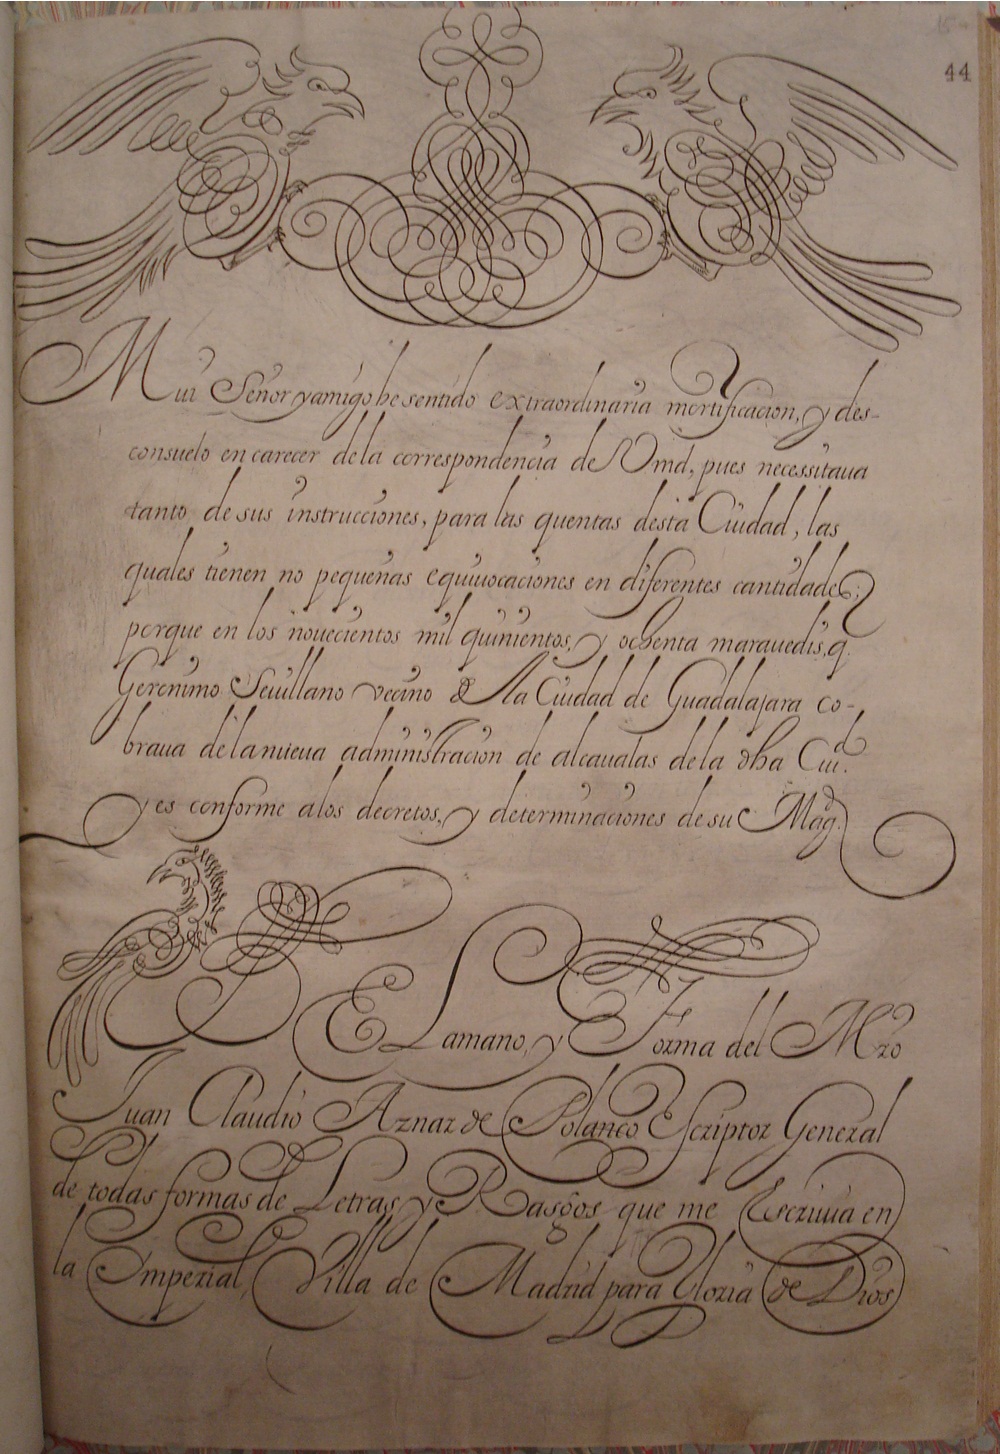 44
Mui Señor y amigo he sentido extraordinaria mortificacion, y des-
consuelo en carecer de la correspondencia de Vmd, pues necessitaua
tanto de sus instrucciones, para las quentas desta Ciudad, las
quales tienen no pequeñas equiuocaciones en diferentes cantidades;
porque en los nouecientos mil quinientos, y ochenta marauedis, q.
Geronimo Seuillano vecino de la Ciudad de Guadalajara co-
braua de la nueua administracion de alcaualas de la dha Ciud.
y es conforme a los decretos, y determinaciones de su Magd.
E Lamano, y Forma del Mro
Juan Claudio Aznar de Polanco Escriptor General
de todas formas de Letras y Rasgos que me Escriuia en
la Imperial Villa de Madrid para Gloria de Dios